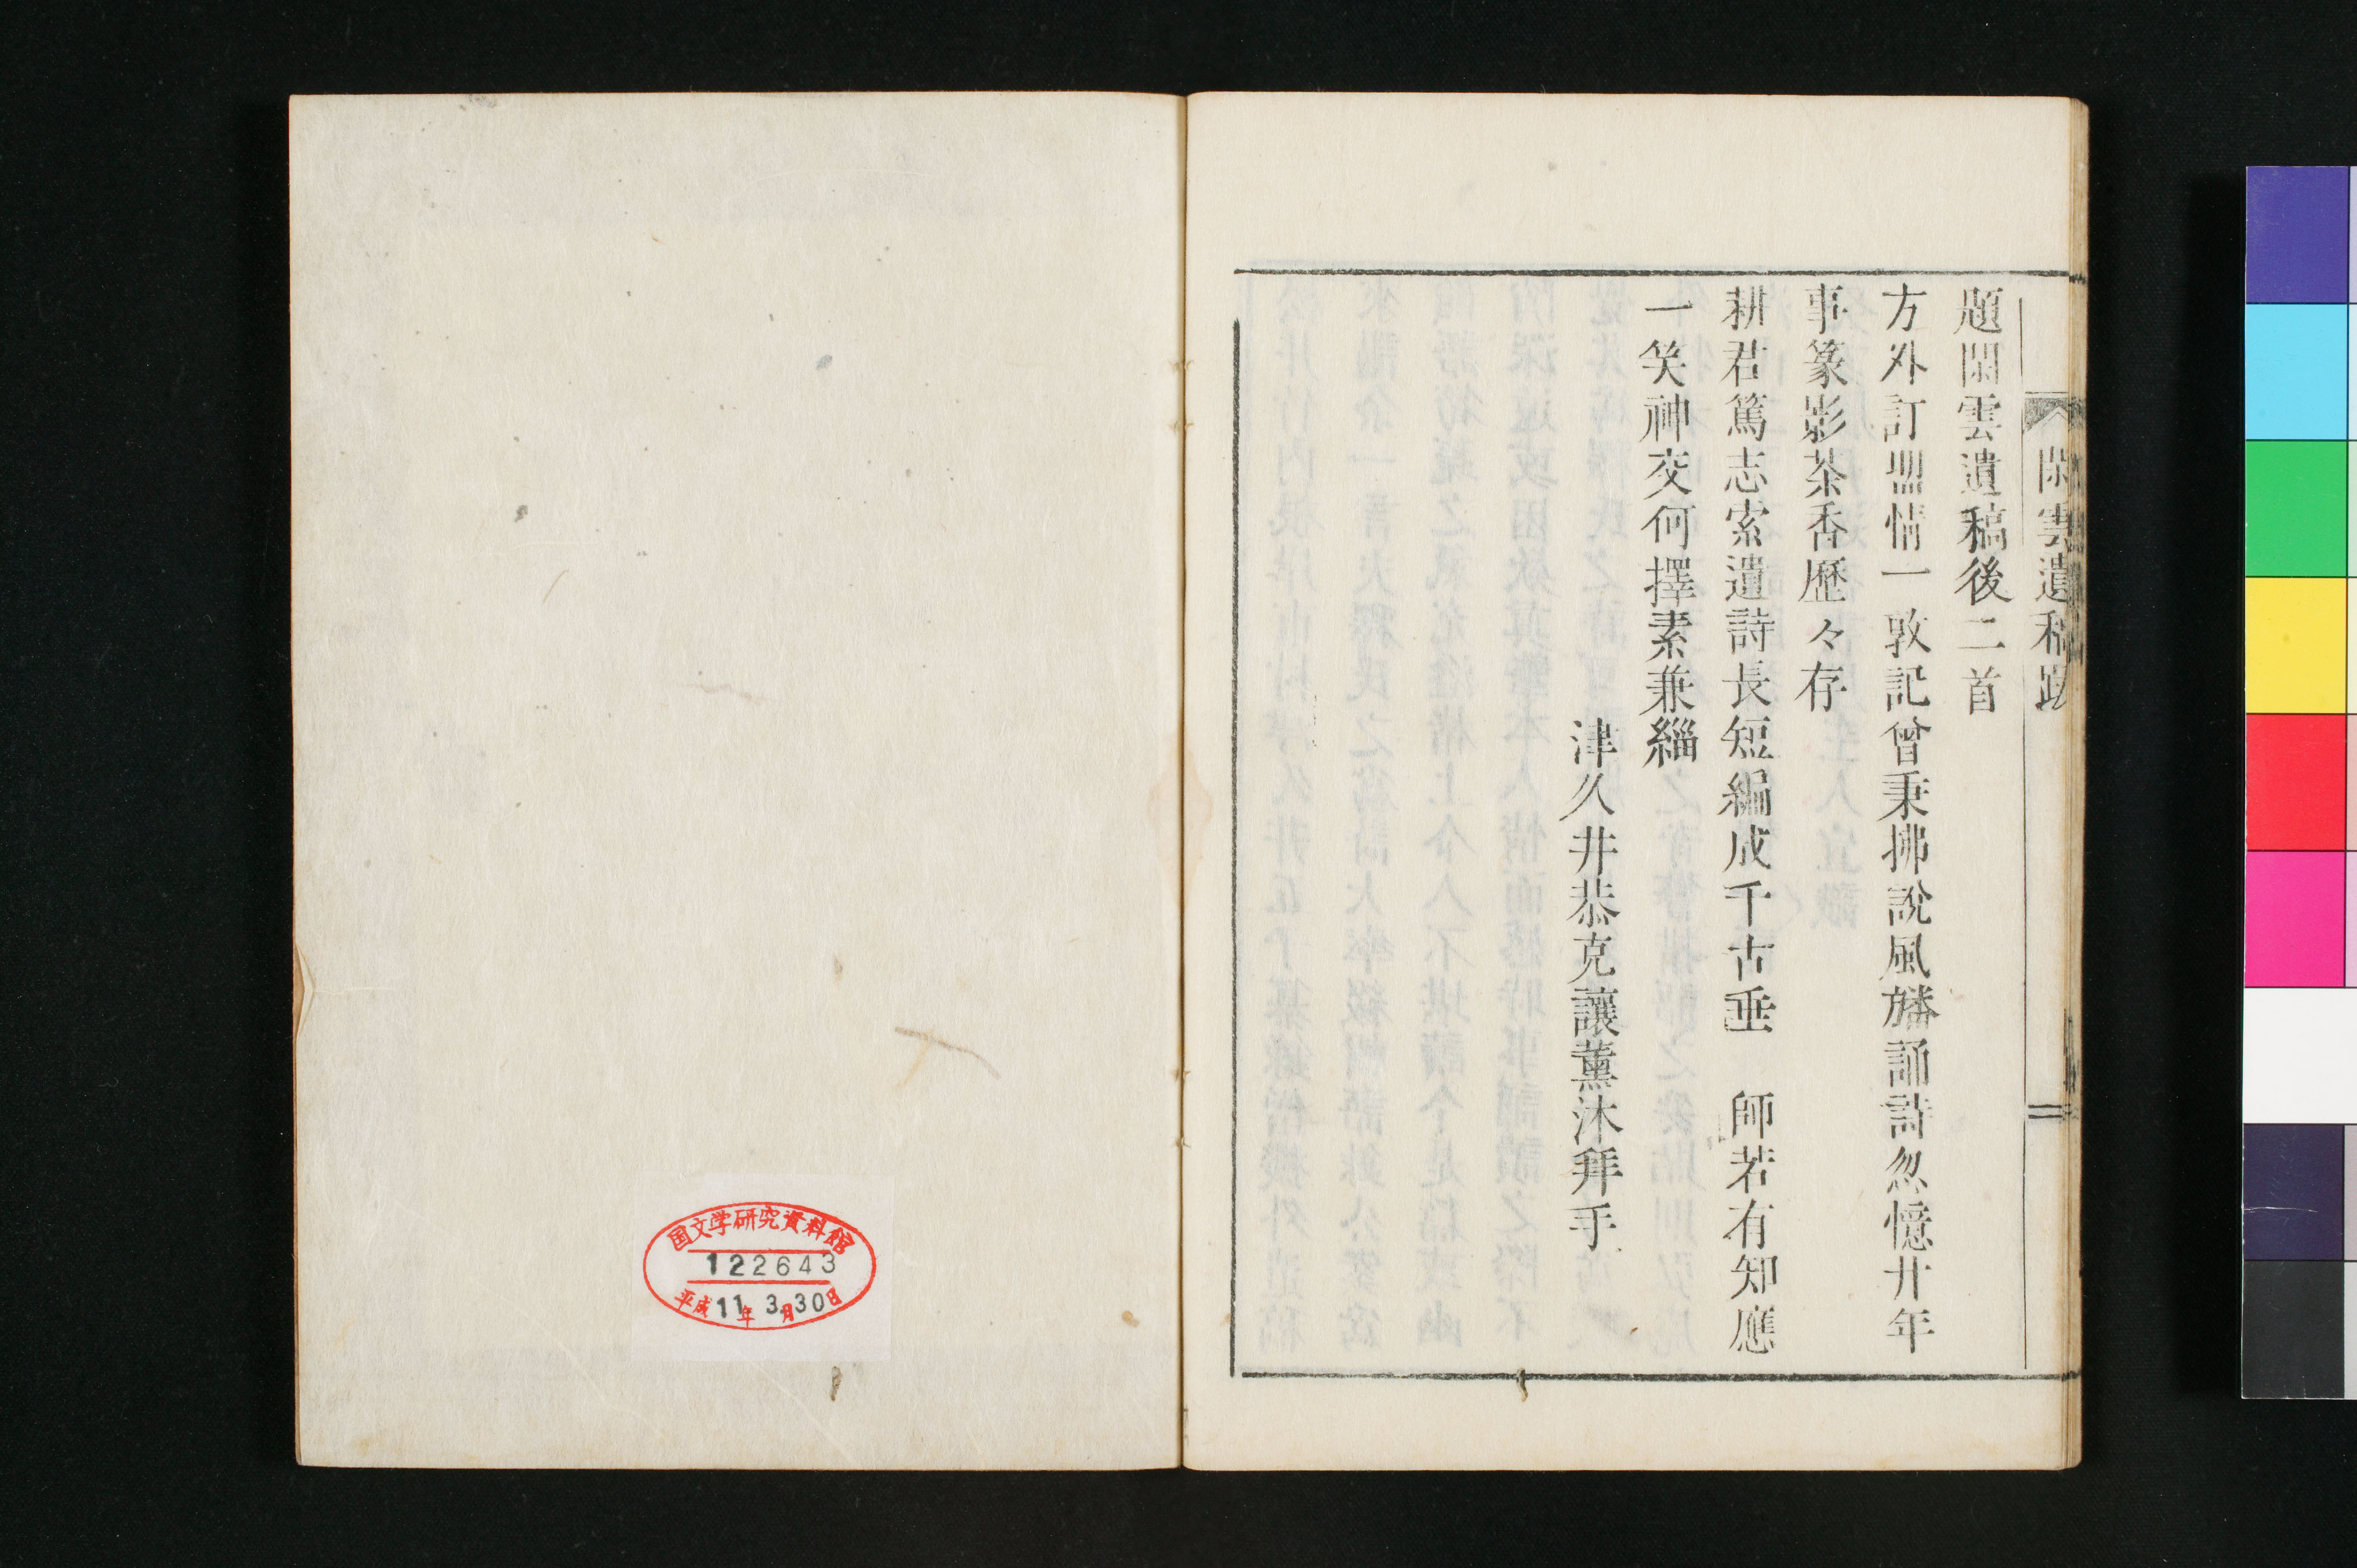 閑雲遺稿跋
二
題閑雲遺稿後二首
方外訂盟情一敦記曾秉拂說風旛誦詩忽憶廾年
事篆影茶香歷々存
耕君篤志索遺詩長短編成千古垂　師若有知應
一笑神交何擇素兼緇
津久井恭克讓薰沐拜手
国文学研究資料館
122643
平成11年3月30日